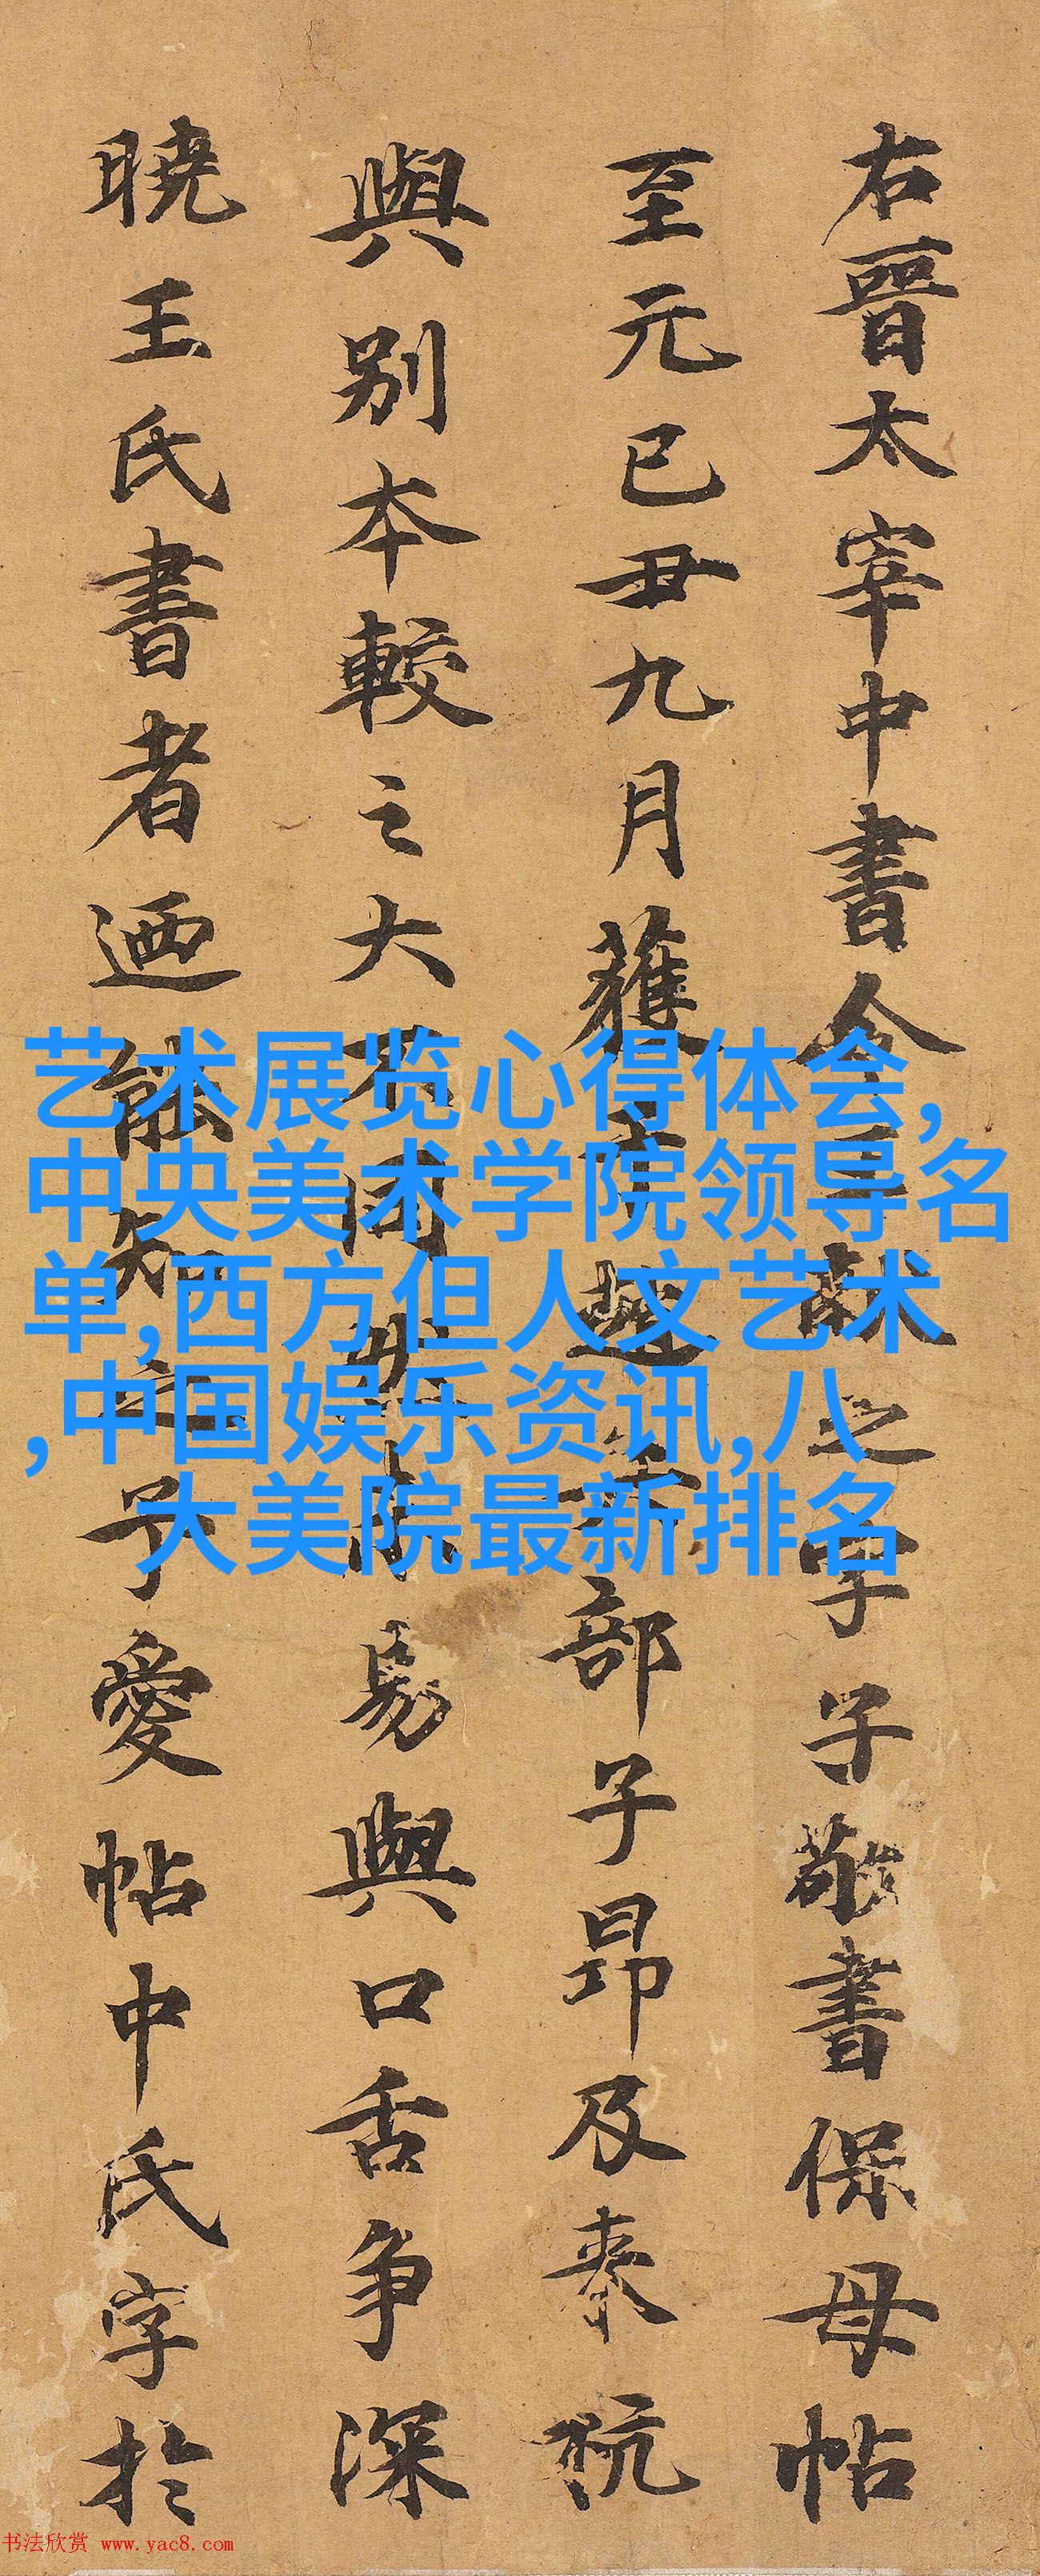 右晉太宰中書令獻之字子敬書保母帖
至元已丑九月獲越部子昂及泰
與别本較之大不同未易與口舌争深
曉王氏書者迺能知之予愛帖中氏字於
艺术展览心得体会,
中央美术学院领导名
单,西方但人文艺术
,中国娱乐资讯,八
大美院最新排名
书法欣赏 www.yac8.com